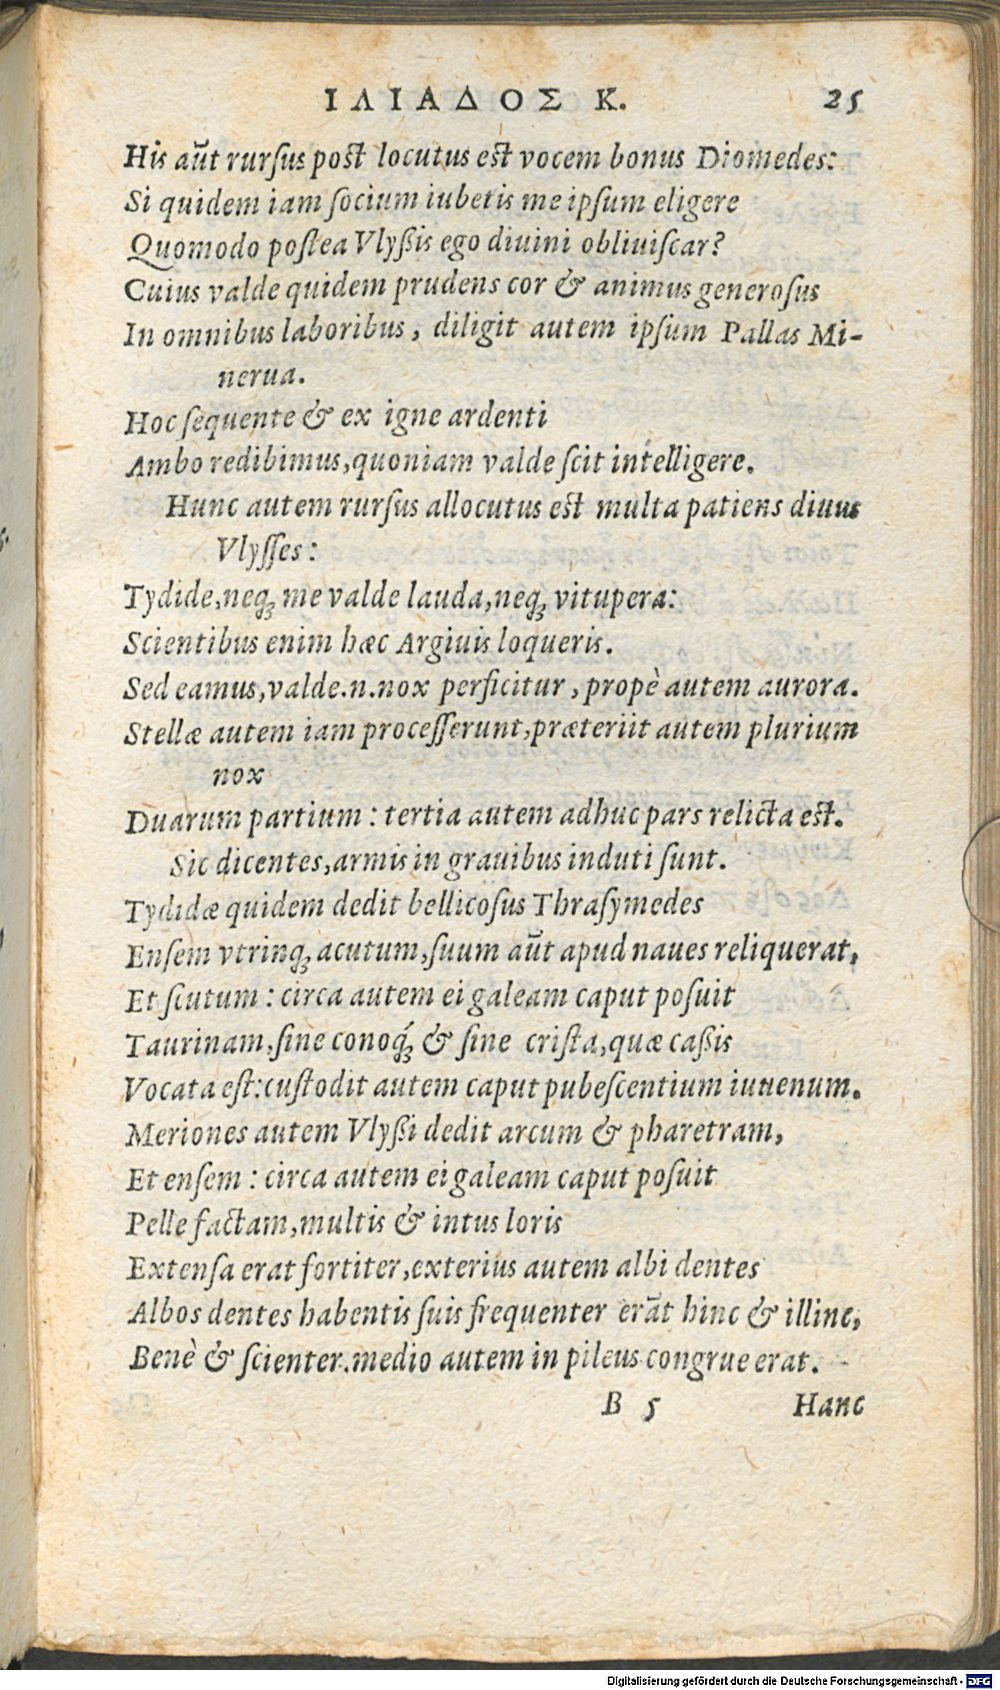 ΙΛΙΑΔΟΣ Κ. 25
His aūt rursus post locutus est vocem bonus Diomedes:
Si quidem iam socium iubetis me ipsum eligere
Quomodo postea Vlyßis ego diuini obliuiscar?
Cuius valde quidem prudens cor & animus generosus
In omnibus laboribus, diligit autem ipsum Pallas Mi-
nerua.
Hoc sequente & ex igne ardenti
Ambo redibimus, quoniam valde scit intelligere.
Hunc autem rursus allocutus est multa patiens diuus
Vlysses:
Tydide, neq; me valde lauda, neq; vitupera:
Scientibus enim hæc Argiuis loqueris.
Sed eamus, valde.n.nox perficitur, propè autem aurora.
Stellæ autem iam processerunt, præteriit autem plurium
nox
Duarum partium: tertia autem adhuc pars relicta est.
Sic dicentes, armis in grauibus induti sunt.
Tydidæ quidem dedit bellicosus Thrasymedes
Ensem vtrinq; acutum, suum aūt apud naues reliquerat,
Et scutum: circa autem ei galeam caput posuit
Taurinam, sine conoq́; & sine crista, quæ caßis
Vocata est: custodit autem caput pubescentium iuuenum.
Meriones autem Vlyßi dedit arcum & pharetram,
Et ensem: circa autem ei galeam caput posuit
Pelle factam, multis & intus loris
Extensa erat fortiter, exterius autem albi dentes
Albos dentes habentis suis frequenter erāt hinc & illinc,
Benè & scienter. medio autem in pileus congrue erat.
B 5 Hanc
Digitalisierung gefördert durch die Deutsche Forschungsgemeinschaft - DFG